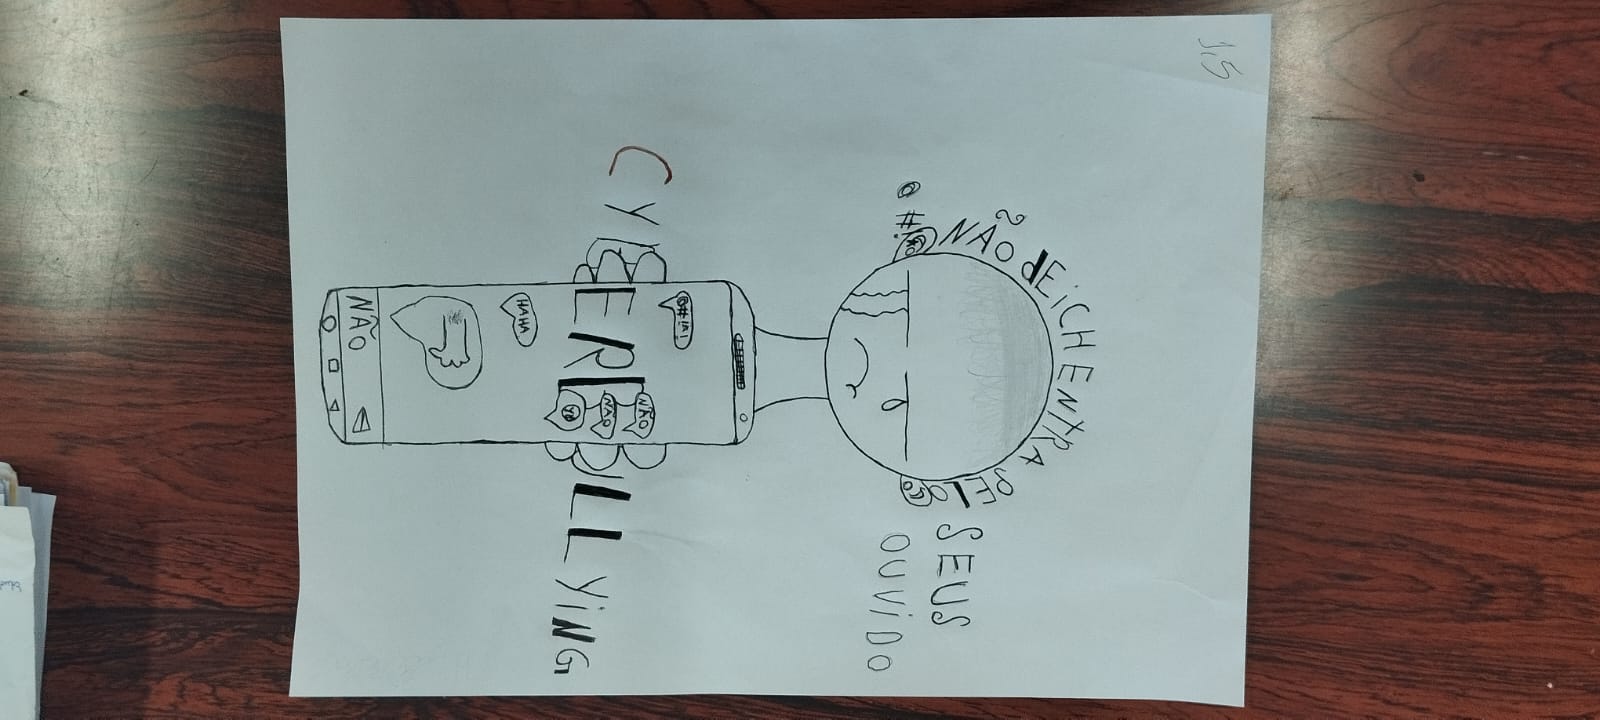 1,5
NÃO dEiCH ENTRA PELO
SEUS
OUViDO
@#!
CYBERBULLYiNG
NÃO
NÃO
HAHA
NÃO